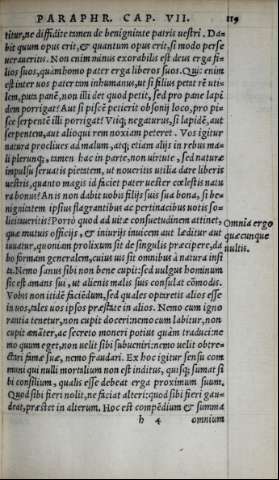 PARAPHR. CAP. VII. 119
titur, ne diffidite tamen de benignitate patris uestri. Da-
bit quum opus erit, & quantum opus erit, si modo perse
ueraueritis. Non enim minus exorabilis est deus erga fi-
lios suos, quam homo pater erga liberos suos. Quis enim
est inter uos pater tam inhumanus, ut si filius petat ab uti-
lem, puta panē, non illi det quod petit, sed pro pane lapi
dem porrigat? Aut si piscē petierit obsonij loco, pro pis-
ce serpentē illi porrigat? Vtiq; negaturus, si lapidē, aut
serpentem, aut alioqui rem noxiam peteret. Vos igitur
natura procliues ad malum, atq; etiam alijs in rebus ma-
li plerunq;, tamen hac in parte, non uirtute, sed naturæ
impulsu seruatis pietatem, ut noueritis utilia dare liberis
uestris, quanto magis id faciet pater uester cœlestis natu
ra bonus? An is non dabit uobis filijs suis sua bona, si be-
nignitatem ipsius flagrantibus ac pertinacibus uotis sol-
licitaueritis? Porrò quod ad uitæ consuetudinem attinet,
quæ mutuis officijs, & iniurijs inuicem aut læditur aut
iuuatur, quoniam prolixum sit de singulis præcipere, da
bo formam generalem, cuius uis sit omnibus à natura insi
ta. Nemo sanus sibi non bene cupit: sed uulgus hominum
sic est amans sui, ut alienis malis suis consulat cōmodis.
Vobis non itidē faciēdum, sed quales optaretis alios esse
in uos, tales uos ipsos præstate in alios. Nemo cum igno
rantia tenetur, non cupit doceri: nemo cum labitur, non
cupit amāter, ac secreto moneri potius quàm traduci: ne
mo quum eget, non uelit sibi subueniri: nemo uelit obtre-
ctari famæ suæ, nemo fraudari. Ex hoc igitur sensu com
muni qui nulli mortalium non est inditus, quisq; sumat si
bi consilium, qualis esse debeat erga proximum suum.
Quod sibi fieri nolit, ne faciat alteri: quod sibi fieri gau-
deat, præstet in alterum. Hoc est compēdium & summa
h 4 omnium
Omnia ergo
quæcunque
uultis.